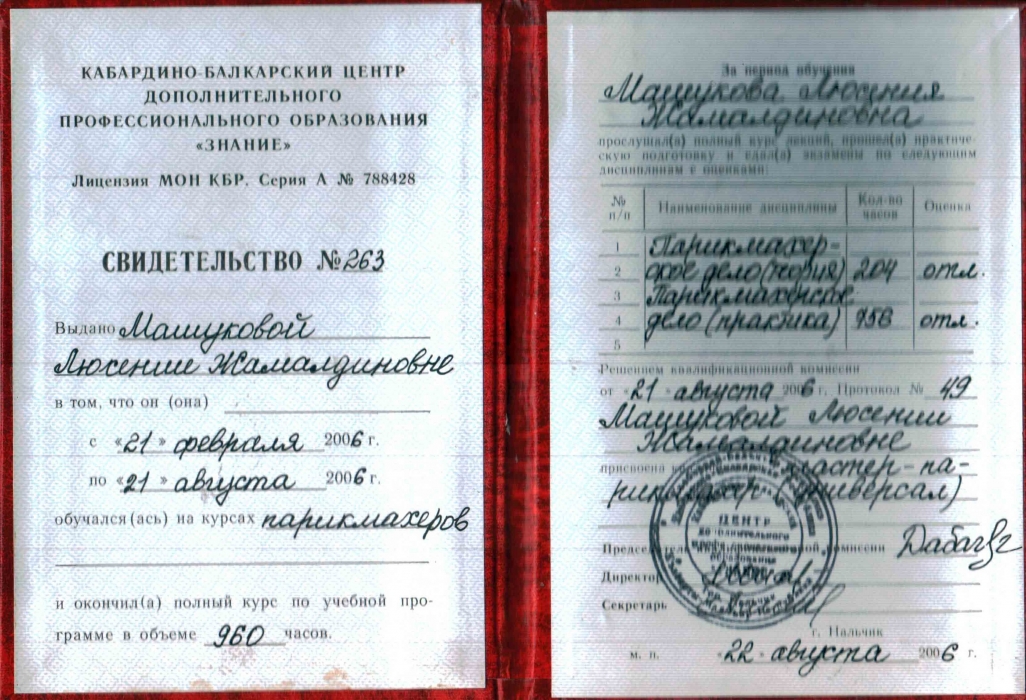 КАБАРДИНО-БАЛКАРСКИЙ ЦЕНТР
ДОПОЛНИТЕЛЬНОГО
ПРОФЕССИОНАЛЬНОГО ОБРАЗОВАНИЯ
«ЗНАНИЕ»
Лицензия МОН КБР. Серия А № 788428
СВИДЕТЕЛЬСТВО № 263
Выдано Машуковой
Люсении Жамалдиновне
в том, что он (она)
с «21» февраля 2006 г.
по «21» августа 2006 г.
обучался (ась) на курсах парикмахеров
и окончил(а) полный курс по учебной про-
грамме в объеме 960 часов.
За период обучения
Машукова Люсения
Жамалдиновна
прослушал(а) полный курс лекций, прошел(а) практиче-
скую подготовку и сдал(а) экзамены по следующим
дисциплинам с оценками:
№ п/п Наименование дисциплины Кол-во часов Оценка
1 Парикмахер-
2 ское дело (теория) 204 отл.
3 Парикмахерское
4 дело (практика) 756 отл.
5
Решением квалификационной комиссии
от «21» августа 2006 г. Протокол № 49
Машуковой Люсении
Жамалдиновне
присвоена мастер-па-
рикмахер (универсал)
ЦЕНТР
дополнительного
образования
Председатель комиссии
Директор
Секретарь
г. Нальчик
м. п. «22» августа 2006 г.